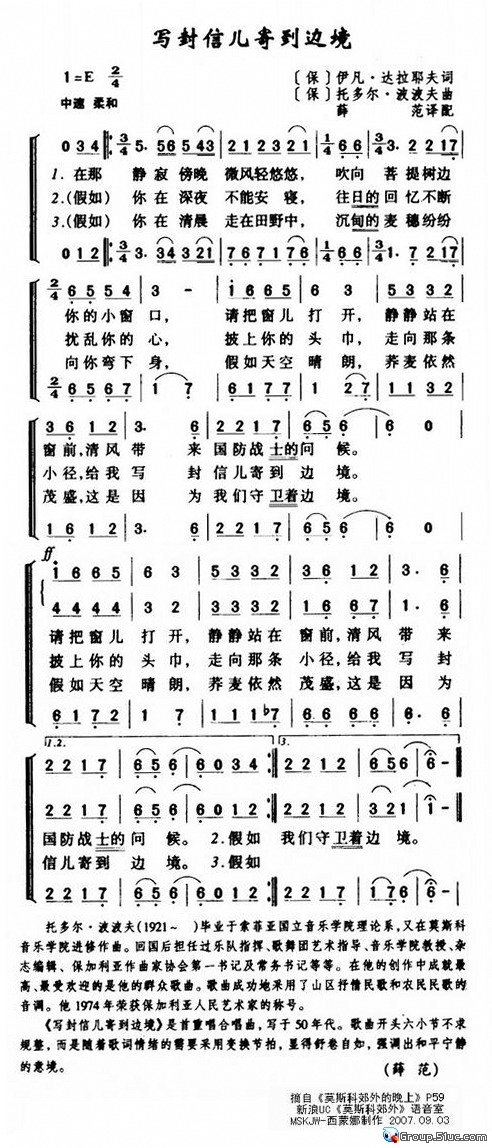 写封信儿寄到边境
1=E 2/4
中速 柔和
〔保〕伊凡·达拉耶夫词
〔保〕托多尔·波波夫曲
薛 范译配
0 3 4 5· 5 6 5 4 3 2 1 2 3 2 1 3· 2 2 1 7
1. 在那 静寂傍晚 微风轻悠悠， 吹向 菩提树边
2.(假如) 你在深夜 不能安寝， 往日的回忆不断
3.(假如) 你在清晨 走在田野中， 沉甸的麦穗纷纷
0 1 2 3· 3 4 3 2 1 7 6 7 1 7 6 1· 7 2 1 7
2/4 6 5 5 4 3 - 1 6 6 5 6 3 5 3 3 2
你的小窗口， 请把窗儿打开， 静静站在
扰乱你的心， 披上你的头巾， 走向那条
向你弯下身， 假如天空晴朗， 荞麦依然
2/4 6 5 6 7 1 7 6 1 7 7 1 2 7 1 1 3 2
3 6 1 2 3· 6 2 2 1 7 6 5 6 6 0
窗前，清风带 来国防战士的问候。
小径，给我写 封信儿寄到边境。
茂盛，这是因 为我们守卫着边境。
1 6 1 2 3· 6 2 2 1 7 6 5 6 6 0
ff
1 6 6 5 6 3 5 3 3 2 3 6 1 2 3· 6
4 4 4 4 3 2 3 3 3 2 1 6 6 7 1· 6
请把窗儿打开， 静静站在 窗前，清风带来
披上你的头巾， 走向那条 小径，给我写封
假如天空晴朗， 荞麦依然 茂盛，这是因为
6 1 7 2 1 7 1 1 1 ♭7 6 6 6 6 6· 6
1.2. 3.
2 2 1 7 6 5 6 6 0 2 2 1 7 6 5 6 6 -
2 2 1 7 3 2 1 1 0 2 2 1 7 3 2 1 1 -
国防战士的问候。 2.假如 我们守卫着边境。
信儿寄到边境。 3.假如
2 2 1 7 6 5 6 6 0 2 2 1 7 6 5 6 6 -
托多尔·波波夫(1921~ )毕业于索菲亚国立音乐学院理论系，又在莫斯科
音乐学院进修作曲。回国后担任过乐队指挥、歌舞团艺术指导、音乐学院教授、杂
志编辑、保加利亚作曲家协会第一书记及常务书记等等。在他的创作中成就最
高、最受欢迎的是他的群众歌曲。歌曲成功地采用了山区抒情民歌和农民民歌的
音调。他1974年荣获保加利亚人民艺术家的称号。
《写封信儿寄到边境》是首重唱合唱曲，写于50年代。歌曲开头六小节不求
规整，而是随着歌词情绪的需要采用变换节拍，显得舒卷自如，强调出和平宁静
的意境。
(薛 范)
摘自《莫斯科郊外的晚上》P59
新浪UC《莫斯科郊外》语音室
MSKJW-西蒙娜制作 2007.09.03
Group.51uc.com